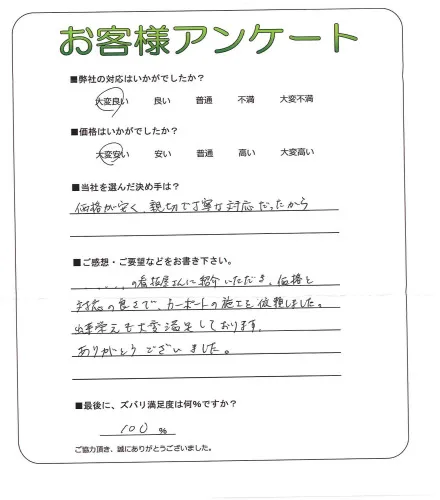 お客様アンケート
■弊社の対応はいかがでしたか？
大変良い　良い　普通　不満　大変不満
■価格はいかがでしたか？
大変安い　安い　普通　高い　大変高い
■当社を選んだ決め手は？
価格が安く、親切で丁寧な対応だったから
■ご感想・ご要望などをお書き下さい。
の看板屋さんに紹介いただき、価格と
対応の良さで、カーポートの施工を依頼しました。
出来栄えも大変満足しております。
ありがとうございました。
■最後に、ズバリ満足度は何%ですか？
100 %
ご協力頂き、誠にありがとうございました。